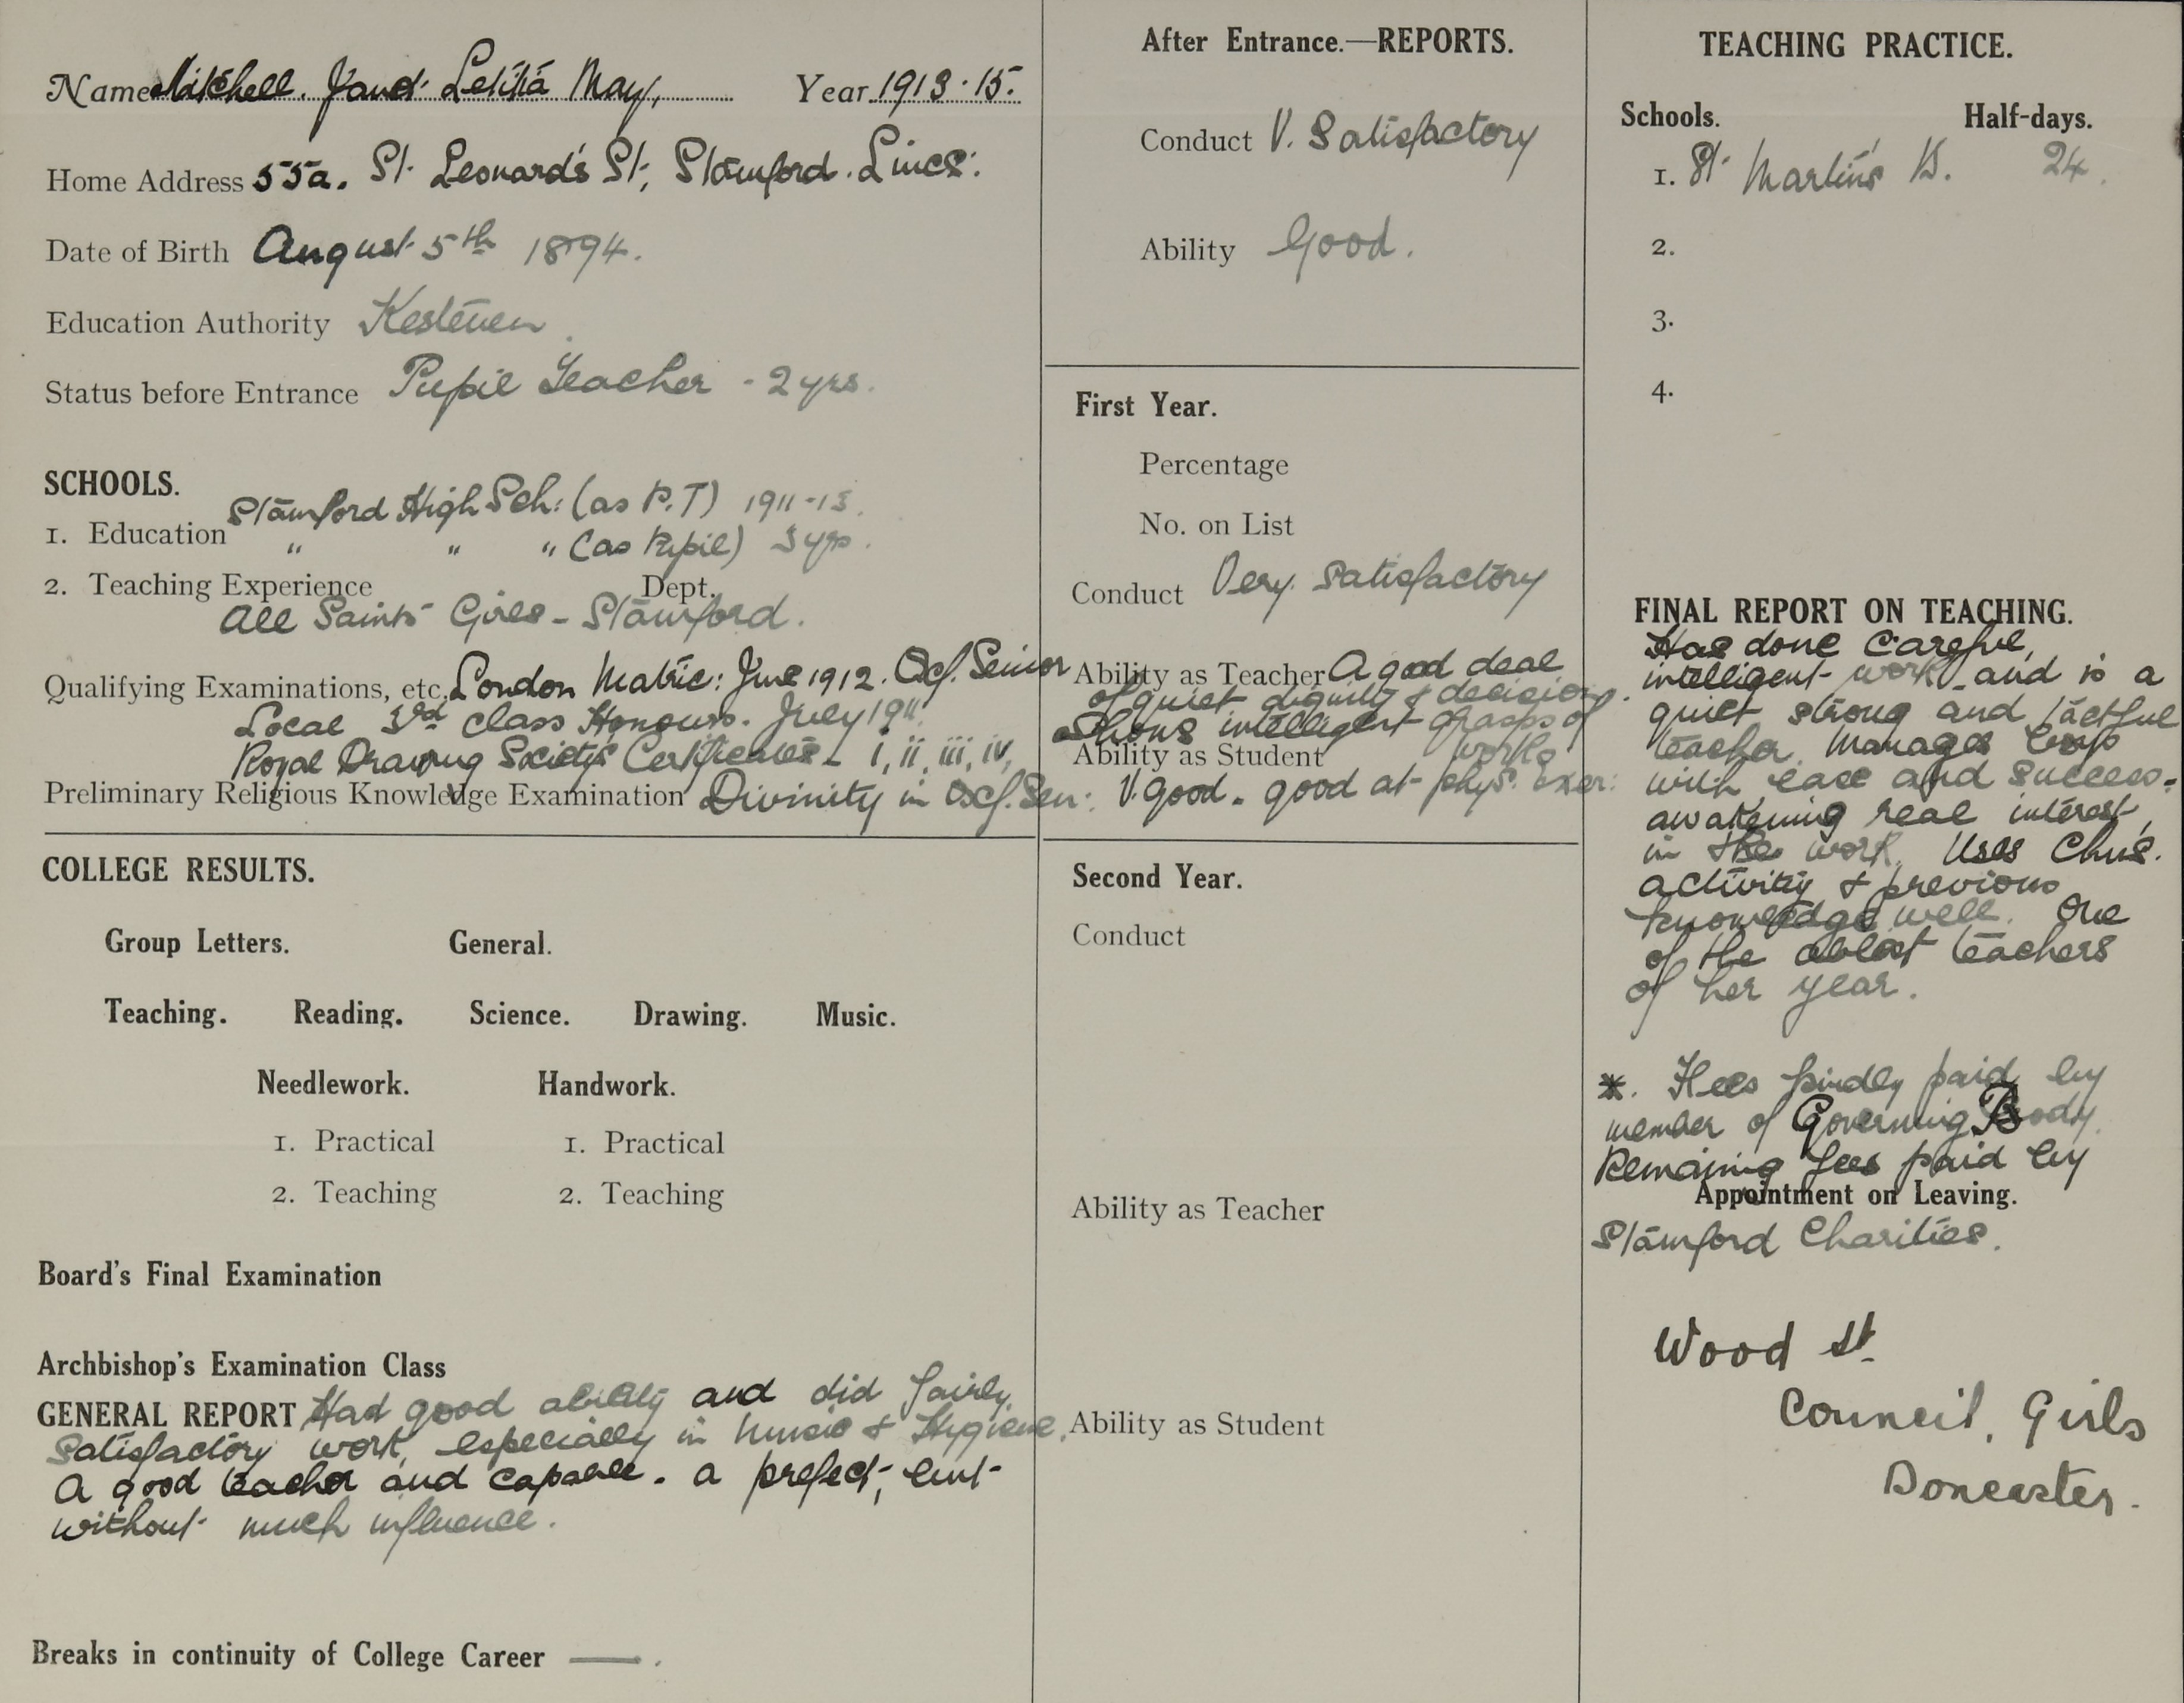 Name Mitchell. Janet Letitia May, Year 1913-15.
Home Address 55a. St. Leonard's St, Stamford. Lincs:
Date of Birth August 5th 1894.
Education Authority Kesteven
Status before Entrance Pupil Teacher - 2 yrs.
SCHOOLS.
Stamford High Sch: (as P.T) 1911-13.
1. Education
" " " (as Pupil) 3 yrs.
2. Teaching Experience Dept.
All Saints Girls - Stamford.
Qualifying Examinations, etc. London Matric: June 1912. Oxf. Senior
Local 3rd Class Honours. July 1911.
Royal Drawing Society's Certificates - i, ii, iii, iv,
Preliminary Religious Knowledge Examination Divinity in Oxf. Sen:
COLLEGE RESULTS.
Group Letters. General.
Teaching. Reading. Science. Drawing. Music.
Needlework. Handwork.
1. Practical 1. Practical
2. Teaching 2. Teaching
Board's Final Examination
Archbishop's Examination Class
GENERAL REPORT Had good ability and did fairly
satisfactory work, especially in Music & Hygiene.
A good teacher and capable. a prefect, but
without much influence.
Breaks in continuity of College Career —.
After Entrance.—REPORTS.
Conduct V. Satisfactory
Ability Good.
First Year.
Percentage
No. on List
Conduct Very satisfactory
Ability as Teacher A good deal
of quiet dignity & decision.
Shows intelligent grasp of
Ability as Student work
V. good. good at phys. exer:
Second Year.
Conduct
Ability as Teacher
Ability as Student
TEACHING PRACTICE.
Schools. Half-days.
1. St Martin's B. 24.
2.
3.
4.
FINAL REPORT ON TEACHING.
Has done careful,
intelligent work and is a
quiet strong and tactful
teacher. Manages boys
with ease and success -
awakening real interest
in the work. Uses Chn's.
activity & previous
knowledge well. One
of the ablest teachers
of her year.
*. Fees kindly paid by
member of Governing Body.
Remaining fees paid by
Appointment on Leaving.
Stamford Charities.
Wood St.
Council, Girls
Doncaster.